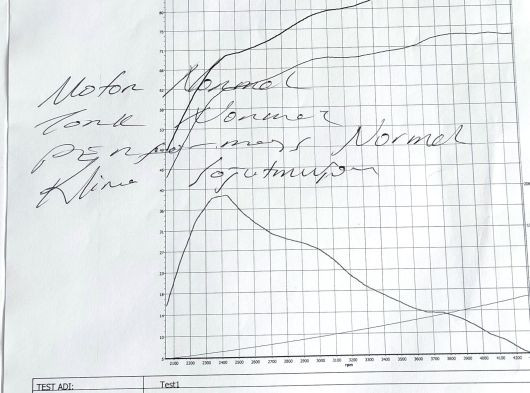 Motor Normal
Tork Normal
Performans Normal
Klima Soğutmuyor
2100 2200 2300 2400 2500 2600 2700 2800 2900 3000 3100 3200 3300 3400 3500 3600 3700 3800 3900 4000 4100 4200
rpm
TEST ADI: Test1